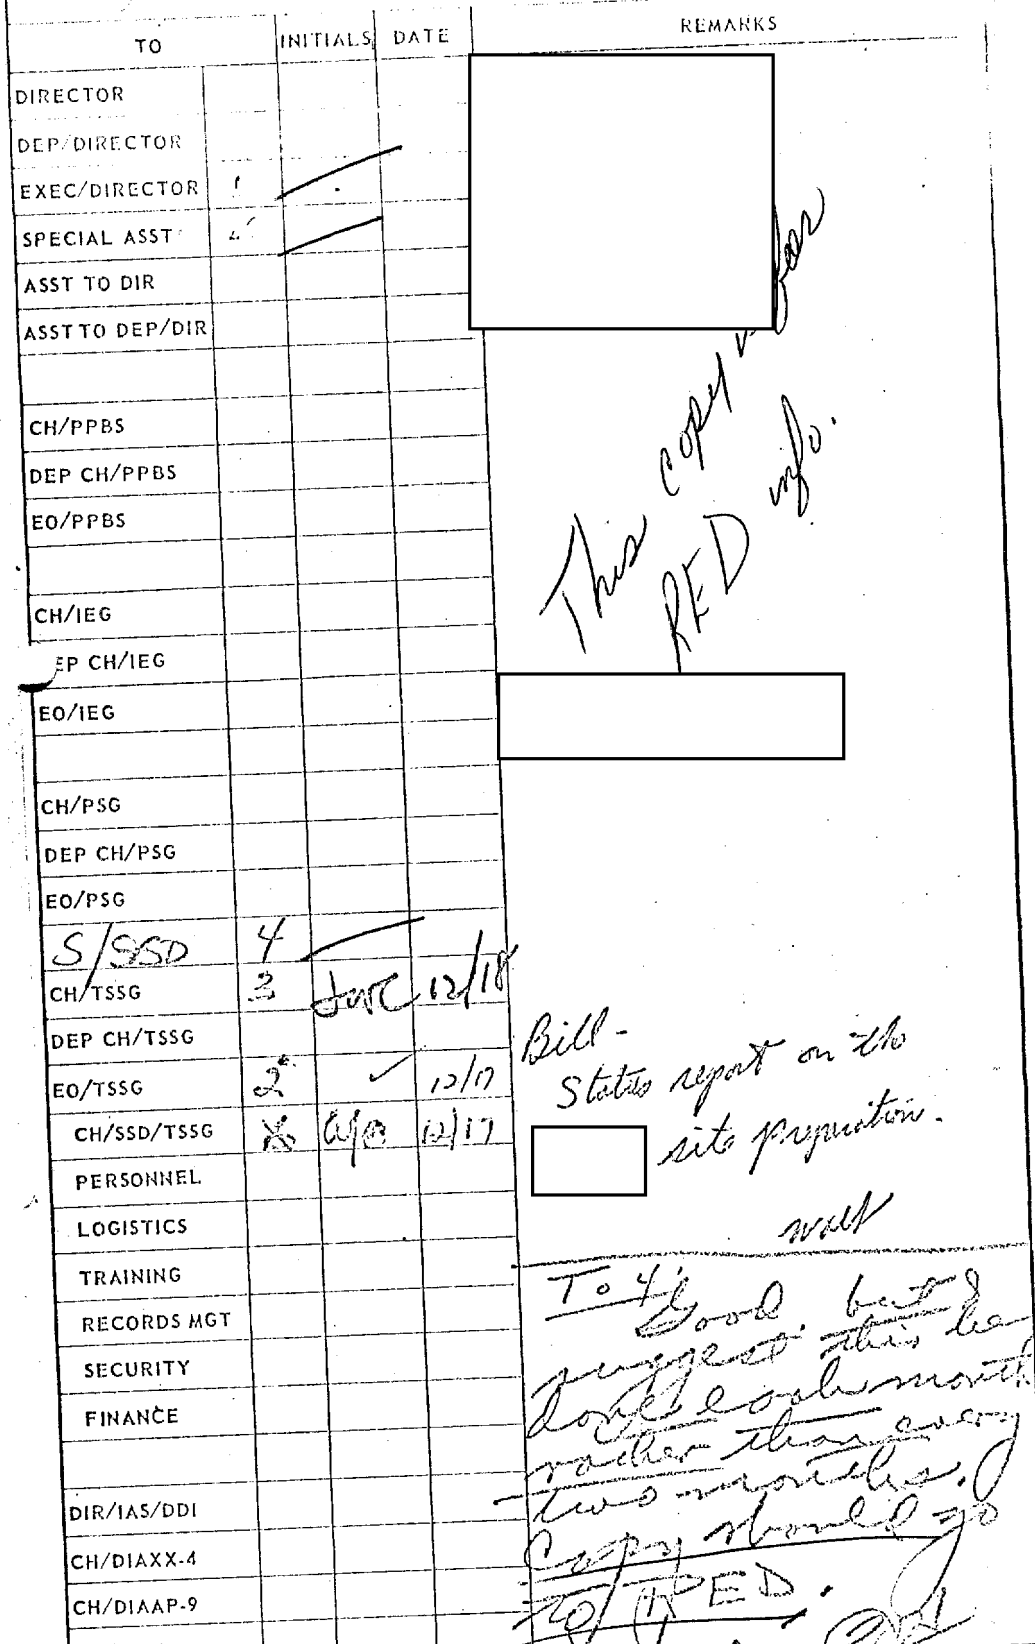 TO INITIALS DATE REMARKS
DIRECTOR
DEP/DIRECTOR
EXEC/DIRECTOR
SPECIAL ASST
ASST TO DIR
ASST TO DEP/DIR
This copy for
RED info.
CH/PPBS
DEP CH/PPBS
EO/PPBS
CH/IEG
EP CH/IEG
EO/IEG
CH/PSG
DEP CH/PSG
EO/PSG
S/SSD 4
CH/TSSG 3 12/18
DEP CH/TSSG
EO/TSSG 2 ✓ 12/17
CH/SSD/TSSG 12/17
PERSONNEL
LOGISTICS
TRAINING
RECORDS MGT
SECURITY
FINANCE
DIR/IAS/DDI
CH/DIAXX-4
CH/DIAAP-9
Bill-
Status report on the
site preparation.
Walt
To 4:
Good, but I
suggest this be
done each month
rather than every
two months.
Copy should go
to RED.